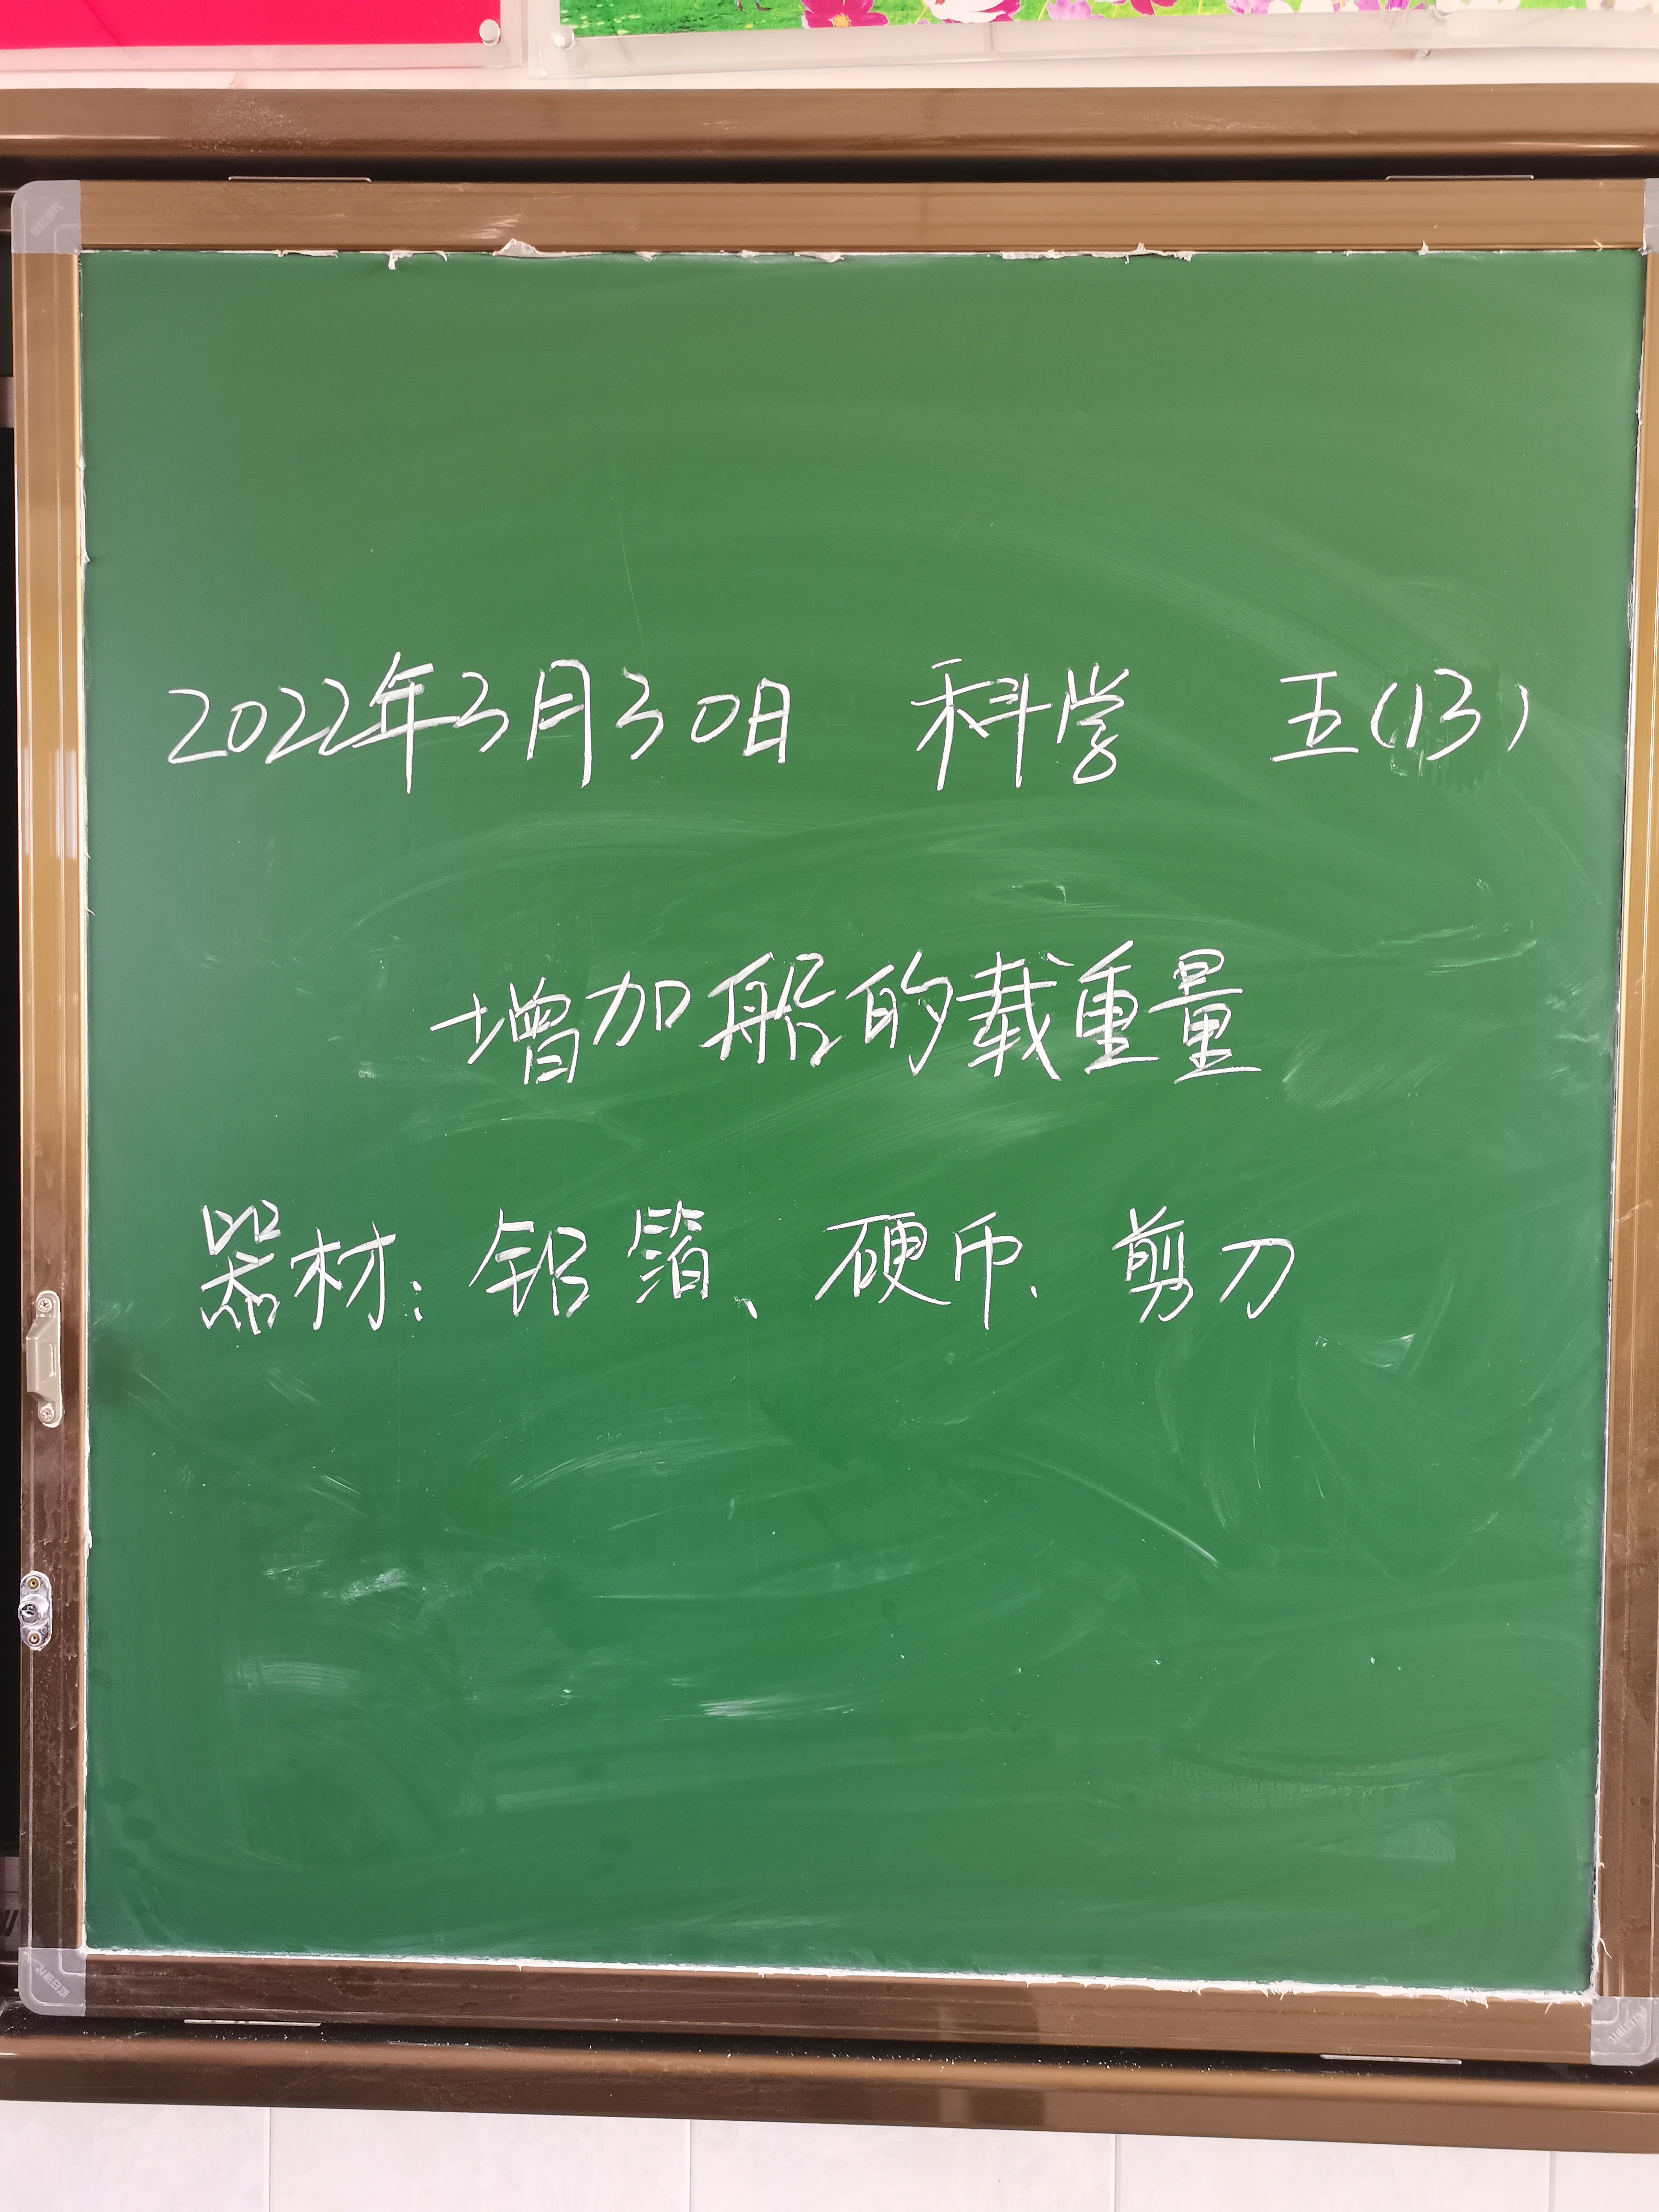 2022年3月30日 科学 五(13)
增加船的载重量
器材:铝箔、硬币、剪刀